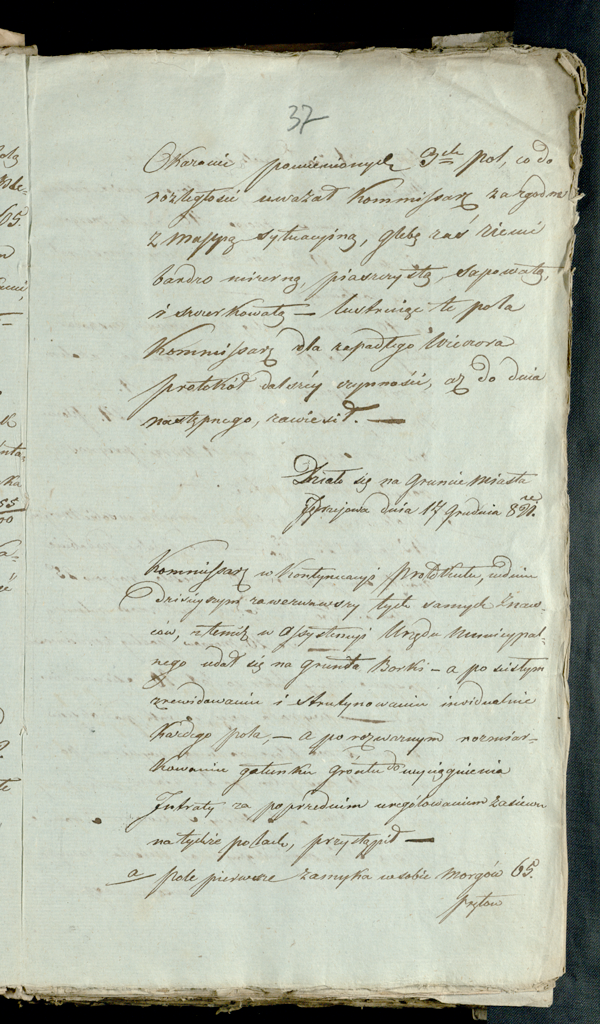 37
Okazanie pomienionych 3ch pol, co do
rozległości uważał Kommissarz za zgodne
z Mappą sytuacyiną, glebę zaś Ziemi
bardzo mizerną, piaszczystą, sapowatą,
i szczerkowatą — lustruiąc te pola
Kommissarz dla zapadłego Wieczora
protokół dalszey czynności, aż do dnia
następnego, zawiesił. —
Działo się na Gruncie Miasta
dnia 17 Grudnia
Kommissarz w Kontynuacyi Protokułu, w dniu
dzisieyszym zawezwawszy tych samych Znaw-
ców, i temiż w Assystencyi Urzędu Municypal-
nego udał się na grunta Borki — a po ścisłym
zrewidowaniu i skrutynowaniu indwidualnie
Każdego pola, — a po rozważnym rozmiar-
kowaniu gatunku Gróntu do wyciągnienia
Intraty za poprzednim uregulowaniem Zasiewu
na tychże polach, przystąpił —
a pole pierwsze zamyka w sobie Morgów 65.
prętow